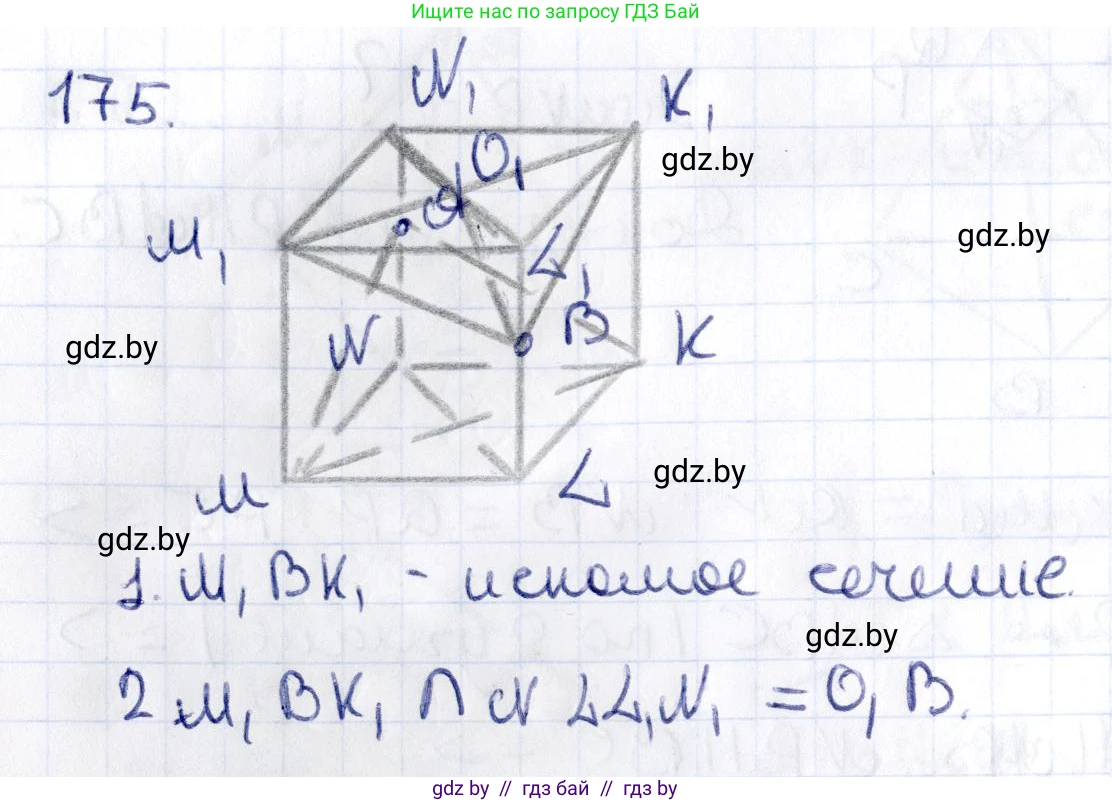 Ищите нас по запросу ГДЗ Бай
175.
N₁
K₁
O₁
gdz.by
A
M₁
L₁
gdz.by
B
N
K
gdz.by
gdz.by
M
L
gdz.by
1. M₁BK₁ - искомое сечение.
gdz.by
2 M₁BK₁ ∩ NLL₁N₁ = O₁B.
gdz by // гдз бай // гдз by